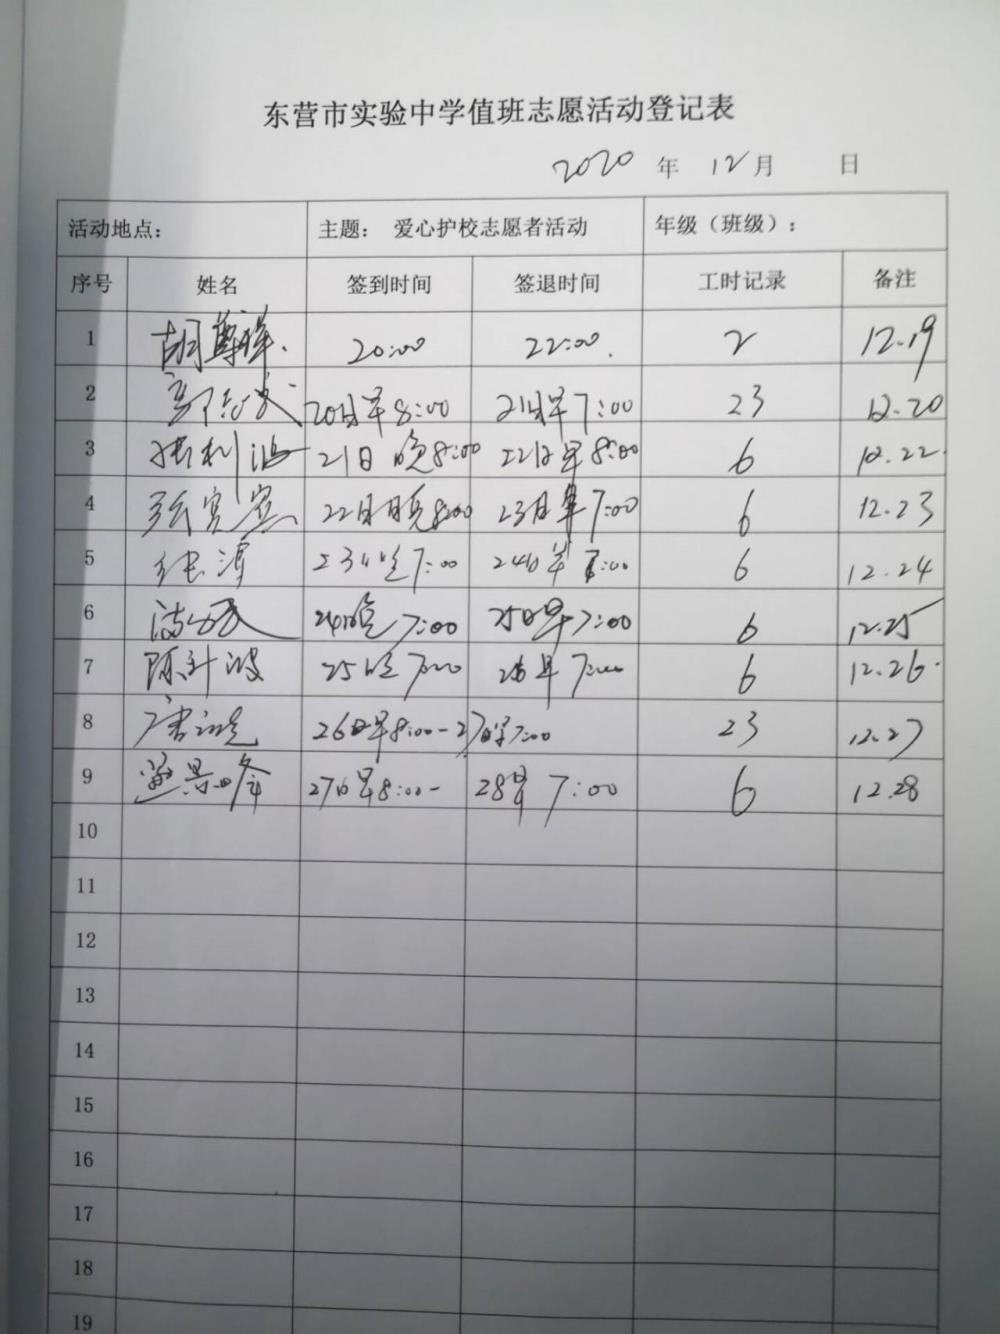 东营市实验中学值班志愿活动登记表
2020 年 12月 日
活动地点： 主题： 爱心护校志愿者活动 年级（班级）：
序号 姓名 签到时间 签退时间 工时记录 备注
1 胡尊祥. 20:00 22:00. 2 12.19
2 20日早8:00 21日早7:00 23 12.20
3 张利 21日 晚8:00 22日早8:00 6 12.22
4 22日晚8:00 23日早7:00 6 12.23
5 23日晚7:00 24日早7:00 6 12.24
6 24日晚7:00 25日早7:00 6 12.25
7 陈 25日晚7:00 26早7:00 6 12.26
8 26日早8:00-27日早7:00 23 12.27
9 景峰 27日早8:00- 28早7:00 6 12.28
10
11
12
13
14
15
16
17
18
19